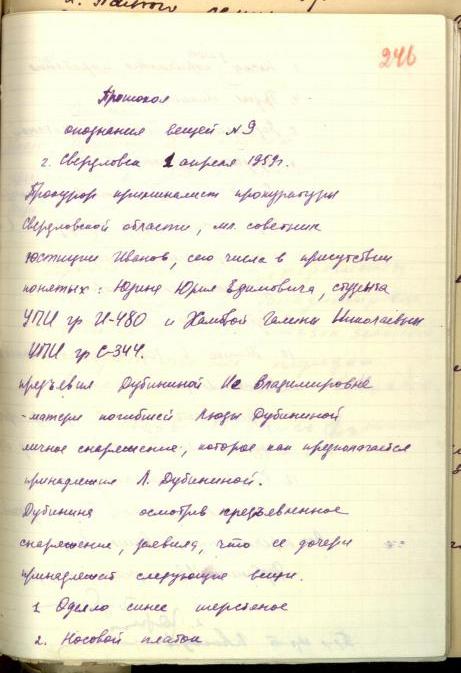 246
Протокол
опознания вещей № 9
г. Свердловск 1 апреля 1959г.
Прокурор криминалист прокуратуры
Свердловской области, мл. советник
юстиции Иванов, сего числа в присутствии
понятых: Юрия Ефимовича, студента
УПИ гр И-480 и Галины Николаевны
УПИ гр С-344.
предъявил Дубининой Владимировне
- матери погибшей Люды Дубининой
личное снаряжение, которое как предполагается
принадлежит Л. Дубининой.
Дубинина осмотрев предъявленное
снаряжение, заявила, что ее дочери
принадлежат следующие вещи.
1. Одеяло синее шерстяное
2. Носовой платок